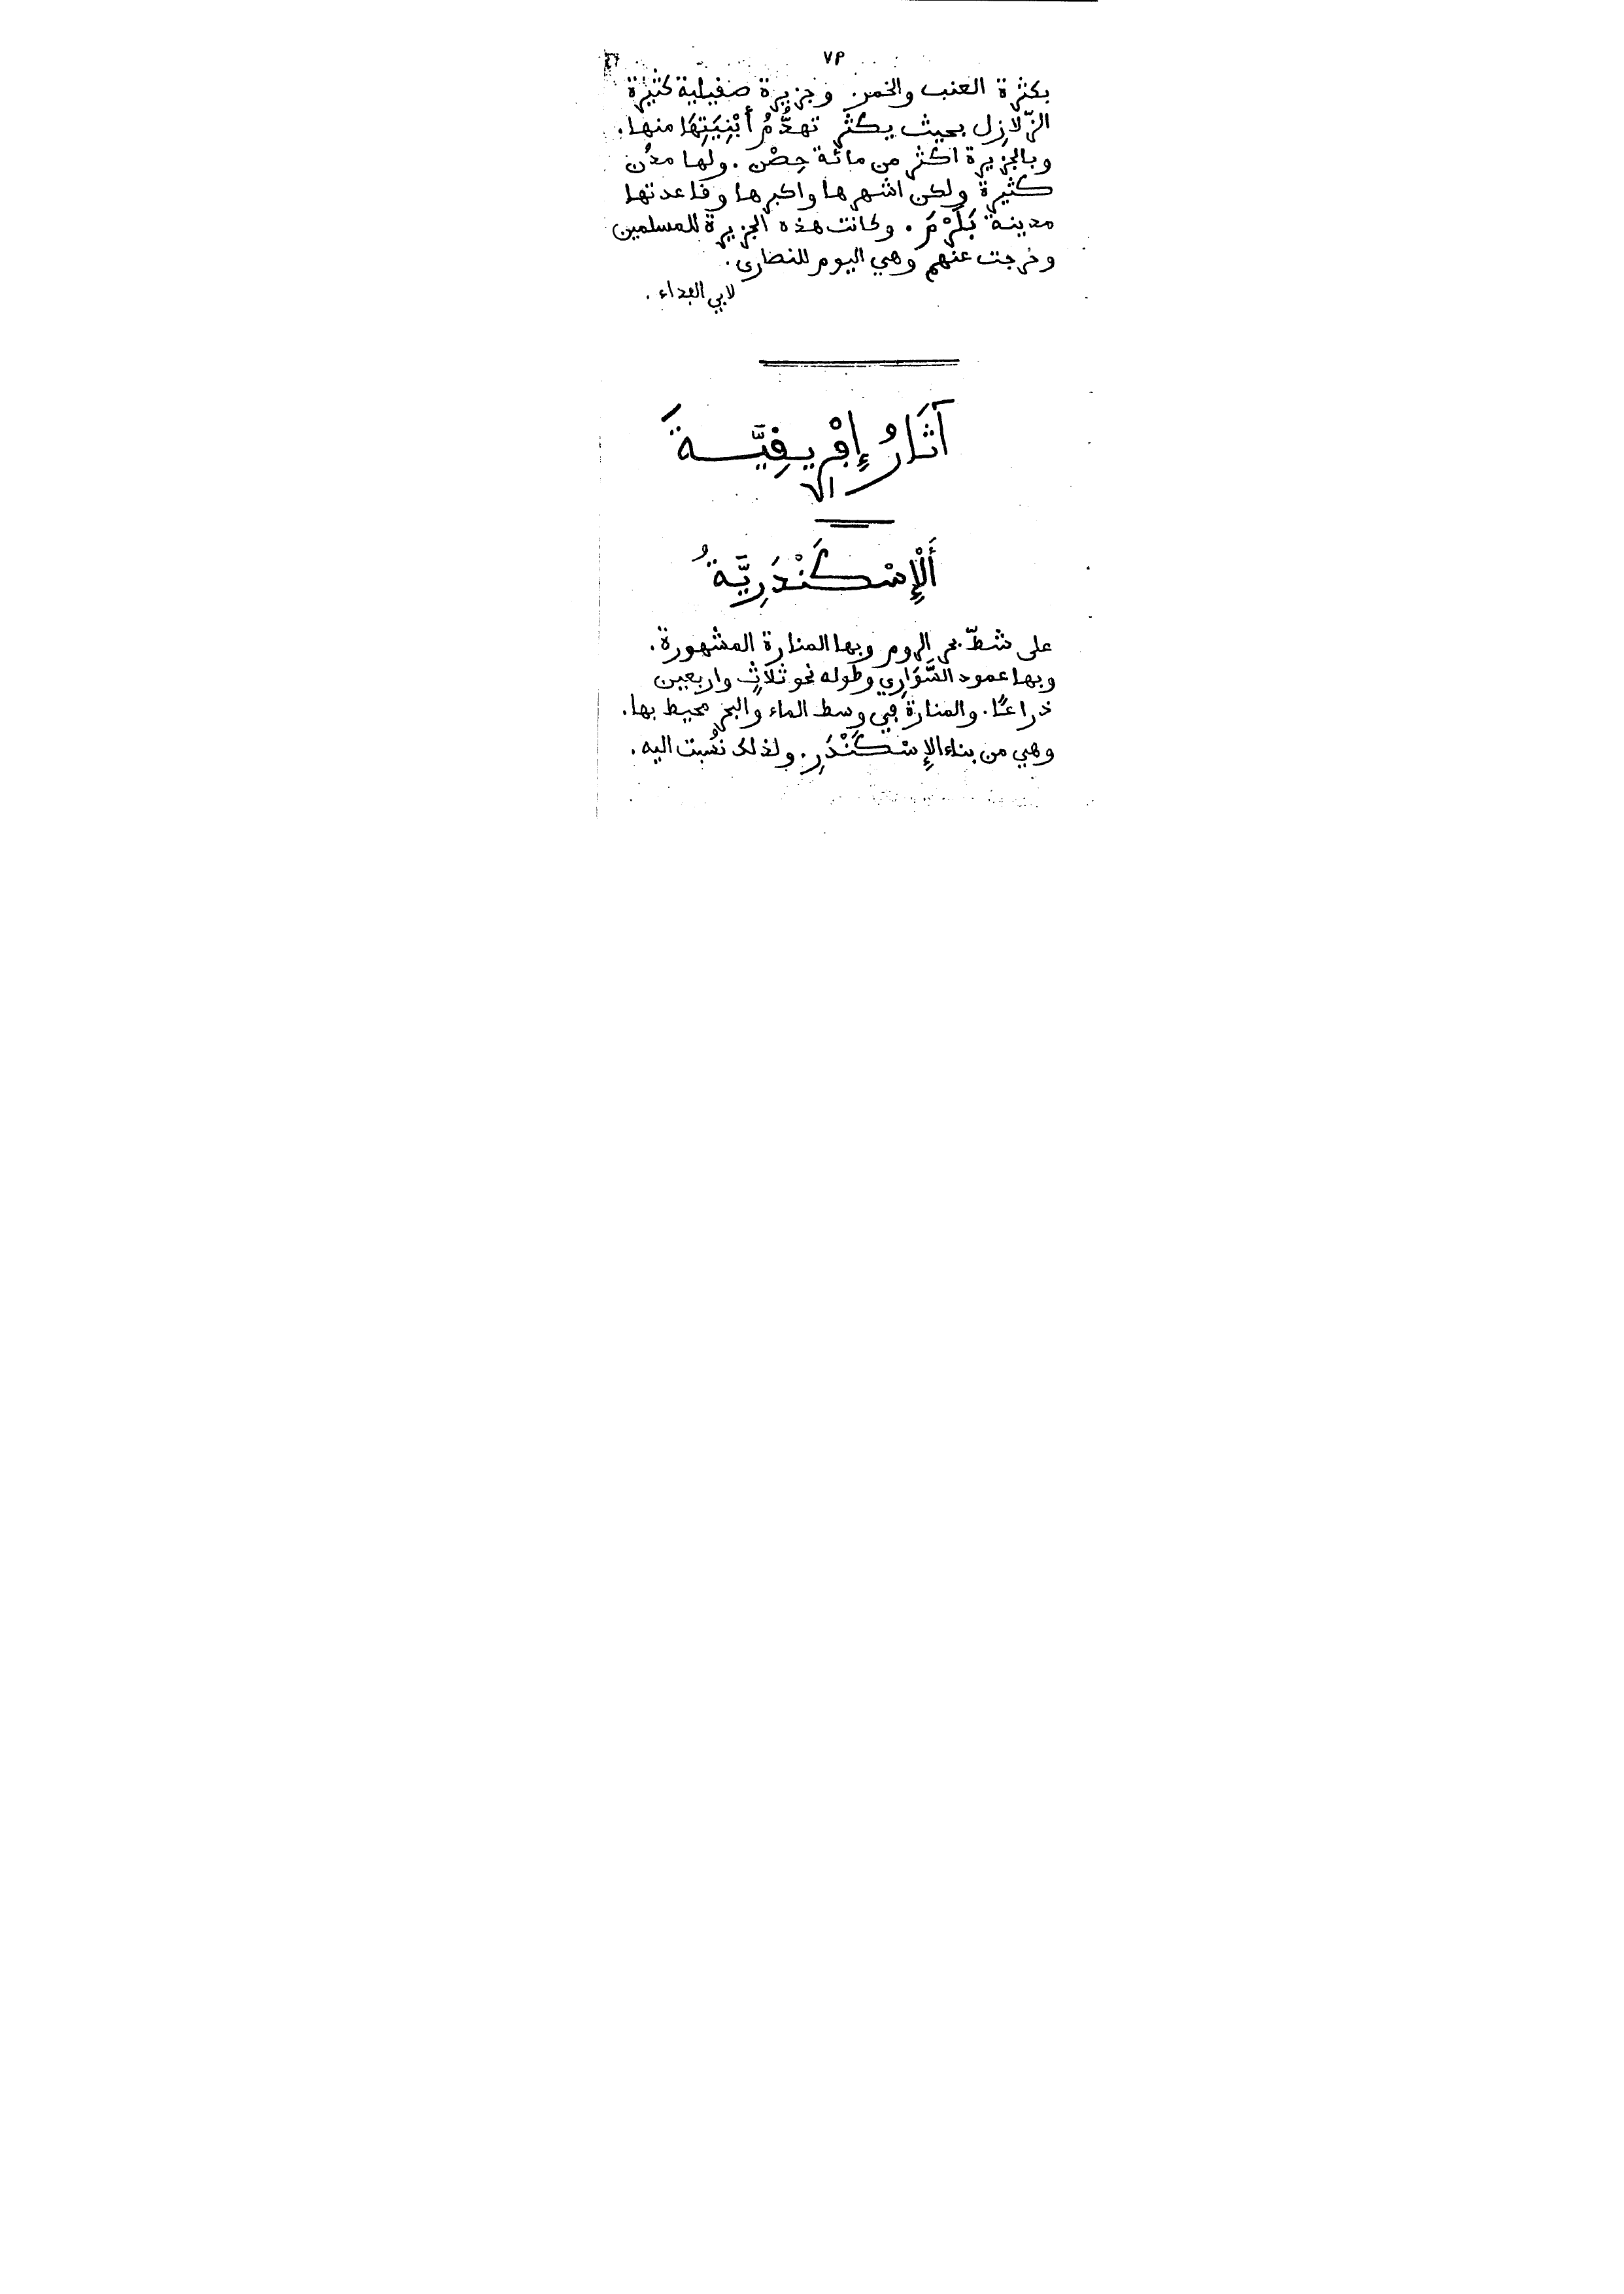 ٧٣
بكثرة العنب والخمر. وجزيرة صفيلية كثيرة
الزّلازِل بحيث يكثر تهدُّمُ أَبْنِيَتِهَا منها.
وبالجزيرة اكثر من مائة حِصْن. ولها مدُن
كثيرة ولكن اشهرها واكبرها وفاعدتها
مدينة بَلَرْمَ. وكانت هذه الجزيرة للمسلمين
وخرجت عنهم وهي اليوم للنصارى.
لابي الفداء.
آثَارُ إِفْرِيفِيَّةَ
أَلْإِسْكَنْدَرِيَّةُ
على شطّ بحر الروم وبها المنارة المشهورة.
وبها عمود السَّوَارِي وطوله نحو ثلاثٍ واربعين
ذراعًا. والمنارة في وسط الماء والبحر محيط بها.
وهي من بناء الإِسْكَنْدَرِ. ولذلك نُسبت اليه.